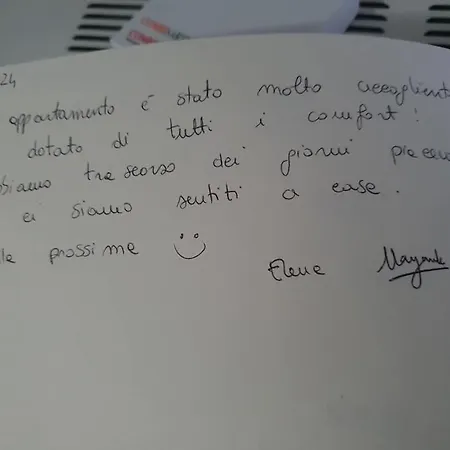 24
appartamento è stato molto accogliente
dotato di tutti i comfort!
trascorso dei giorni
ci siamo sentiti a casa.
prossime
Elena Mayank